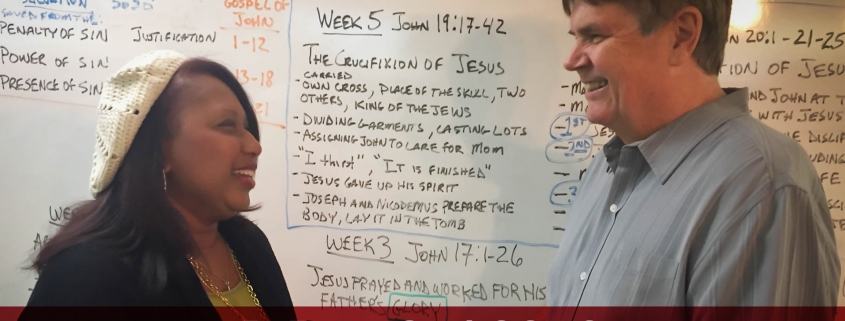 SAVED FROM THE:
PENALTY OF SIN JUSTIFICATION
POWER OF SIN
PRESENCE OF SIN
GOSPEL OF
JOHN
1-12
13-18
WEEK 5 JOHN 19:17-42
THE CRUCIFIXION OF JESUS
CARRIED
- OWN CROSS, PLACE OF THE SKULL, TWO
OTHERS, KING OF THE JEWS
- DIVIDING GARMENTS, CASTING LOTS
- ASSIGNING JOHN TO CARE FOR MOM
- "I thirst", "IT IS FINISHED"
- JESUS GAVE UP HIS SPIRIT
- JOSEPH AND NICODEMUS PREPARE THE
BODY, LAY IT IN THE TOMB
WEEK 3 JOHN 17:1-26
JESUS PRAYED AND WORKED FOR HIS
FATHER'S GLORY
- 1ST
- 2ND
20:1-21-25
OF JESU
AND JOHN AT T
WITH JESUS